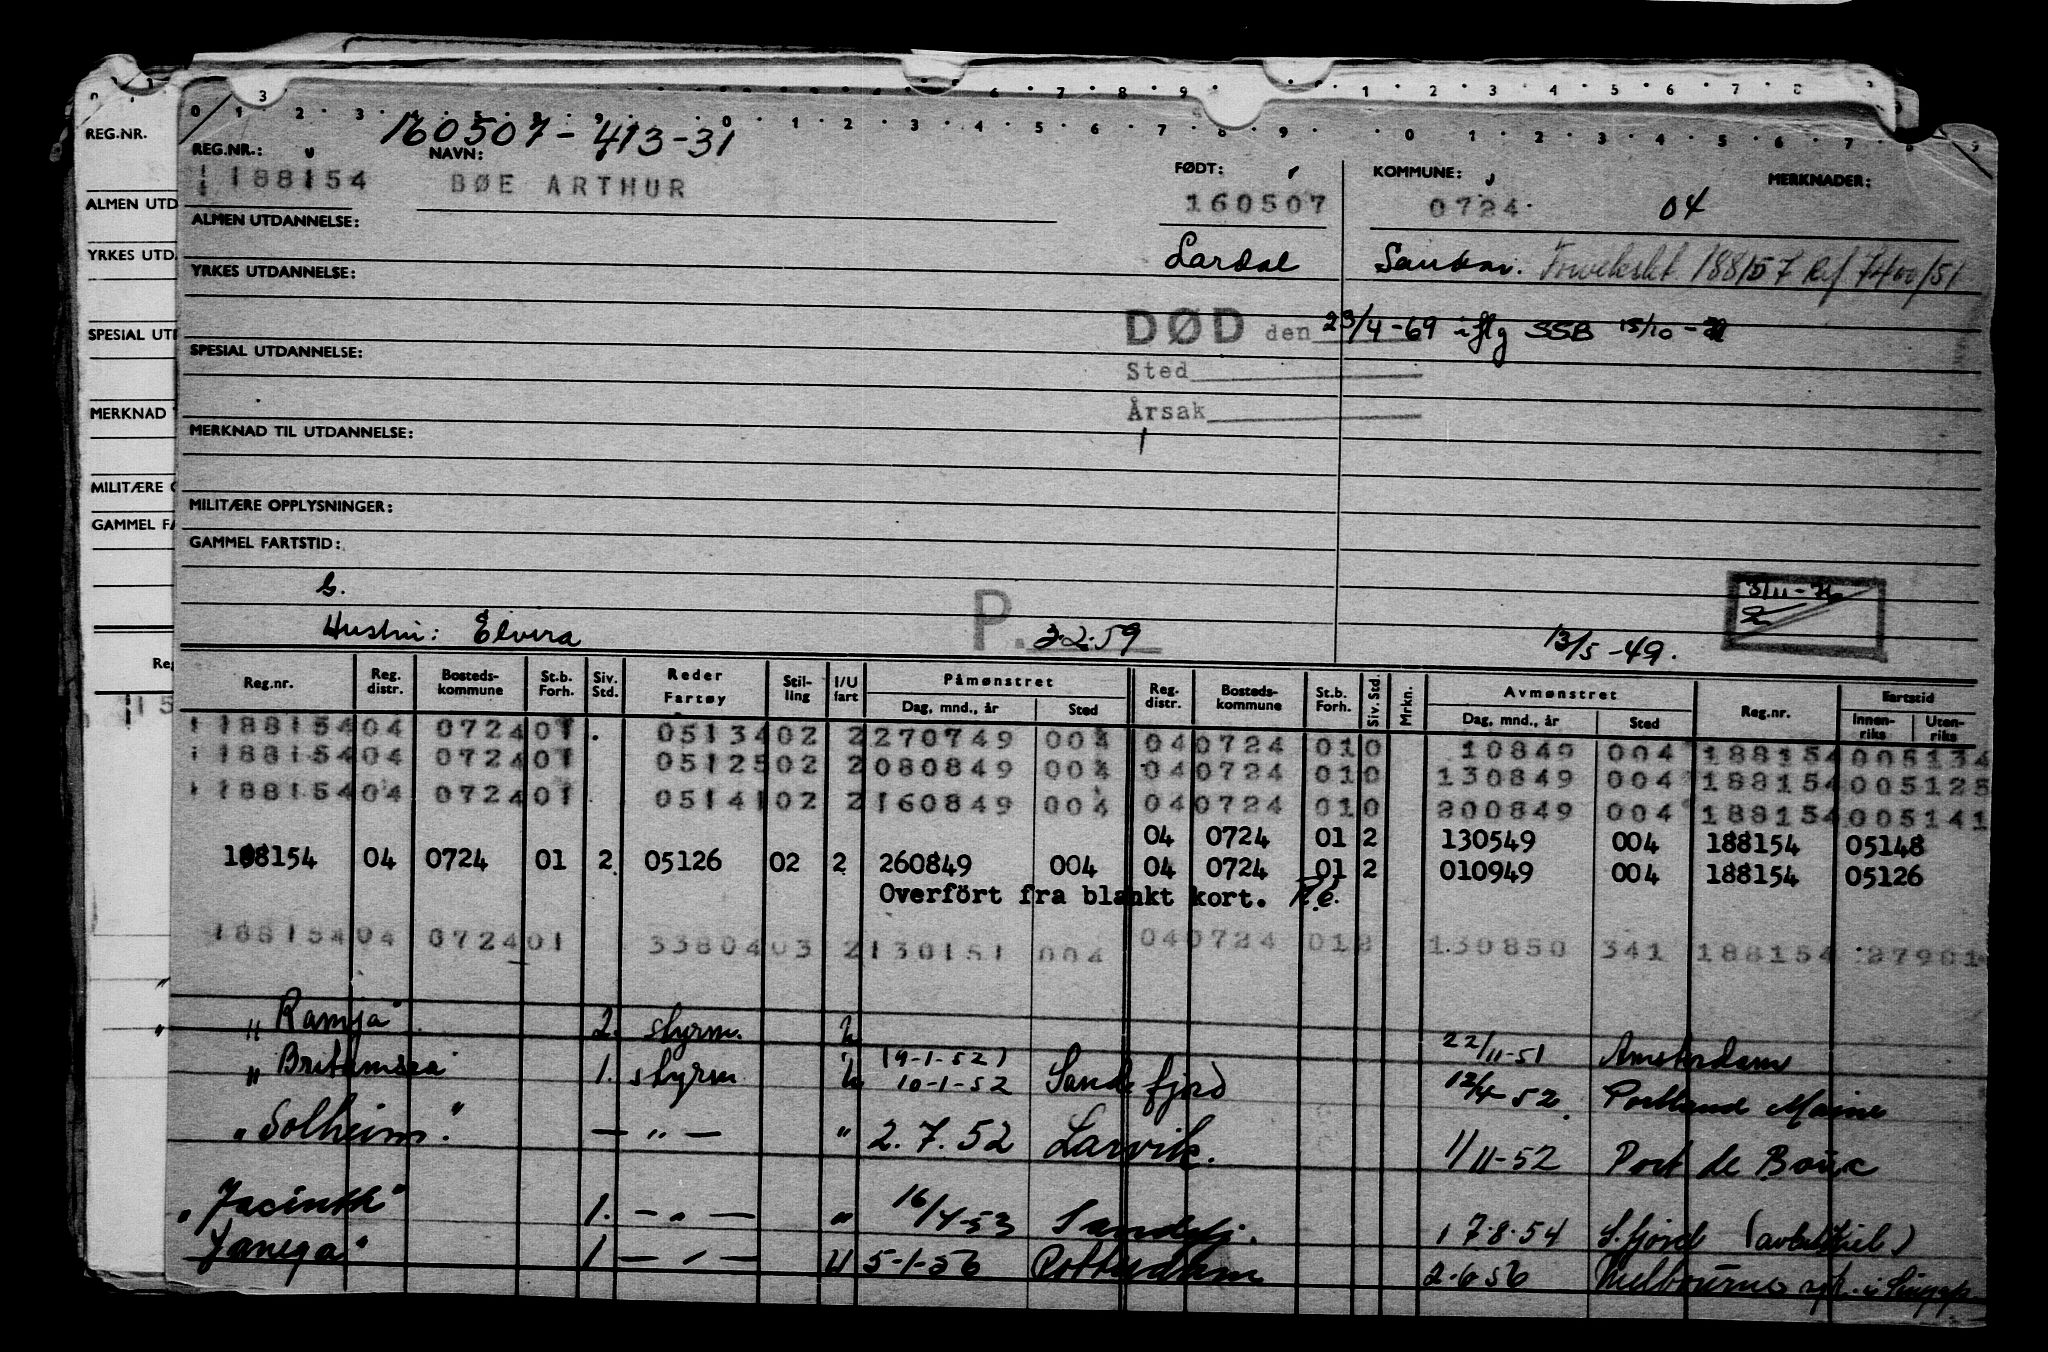 REG.NR.
ALMEN UTD
YRKES UTD
SPESIAL UT
MERKNAD
MILITÆRE
GAMMEL FA
160507-413-31
REG.NR.: NAVN: FØDT: KOMMUNE: MERKNADER:
188154 BØE ARTHUR 160507 0724 04
ALMEN UTDANNELSE:
Lardal Sandar. Forvekslet 188157 Ref 7400/51
YRKES UTDANNELSE:
DØD den 23/4-69 iflg SSB 15/10-
SPESIAL UTDANNELSE:
Sted
Årsak
MERKNAD TIL UTDANNELSE:
MILITÆRE OPPLYSNINGER:
GAMMEL FARTSTID:
G.
Hustru: Elvira P. 3.2.59 13/5-49.
Reg.nr. Reg. distr. Bosteds-kommune St.b. Forh. Siv. Std. Reder Fartøy Stil-ling I/U fart Påmønstret Dag, mnd., år Sted Reg. distr. Bosteds-kommune St.b. Forh. Siv. Std. Mrkn. Avmønstret Dag, mnd., år Sted Reg.nr. Fartstid Innen-riks Uten-riks
188154 04 0724 01 05134 02 2 270749 004 04 0724 01 0 10849 004 188154 005134
188154 04 0724 01 05125 02 2 080849 004 04 0724 01 0 130849 004 188154 005125
188154 04 0724 01 05141 02 2 160849 004 04 0724 01 0 200849 004 188154 005141
04 0724 01 2 130549 004 188154 05148
188154 04 0724 01 2 05126 02 2 260849 004 04 0724 01 2 010949 004 188154 05126
Overfört fra blankt kort.
188154 04 0724 01 33804 03 2 130151 004 04 0724 01 2 130850 341 188154 27901
"Ramja" 2. styrm. 22/11-51 Amsterdam
"Britamsea" 1. styrm (9-1-52) 10-1-52 Sandefjord 12/4-52 Portland Maine
"Solheim" — " — " 2.7.52 Larvik. 1/11-52 Port de Bouc
"Jacinth" 1. — " — " 16/4-53 Sandefj. 17.8.54 S.fjord
Janega" 1 — " — U 5-1-56 Rotterdam 2.6.56 Melbourne